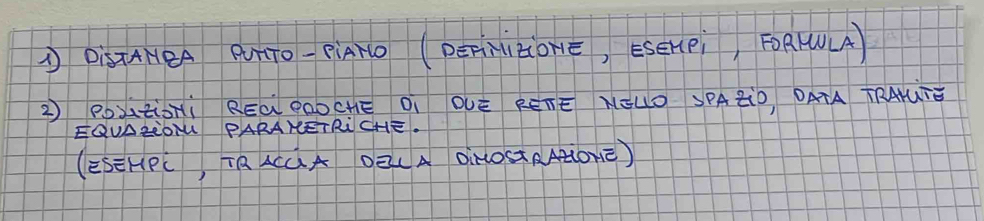 1) DISTANZA PUNTO - PIANO (DEFINIZIONE, ESEMPI, FORMULA)
2) POSIZIONI RECIPROCHE DI DUE RETTE NELLO SPAZIO, DATA TRAMITE
EQUAZIONI PARAMETRICHE.
(ESEMPI, TRACCIA DELLA DIMOSTRAZIONE)